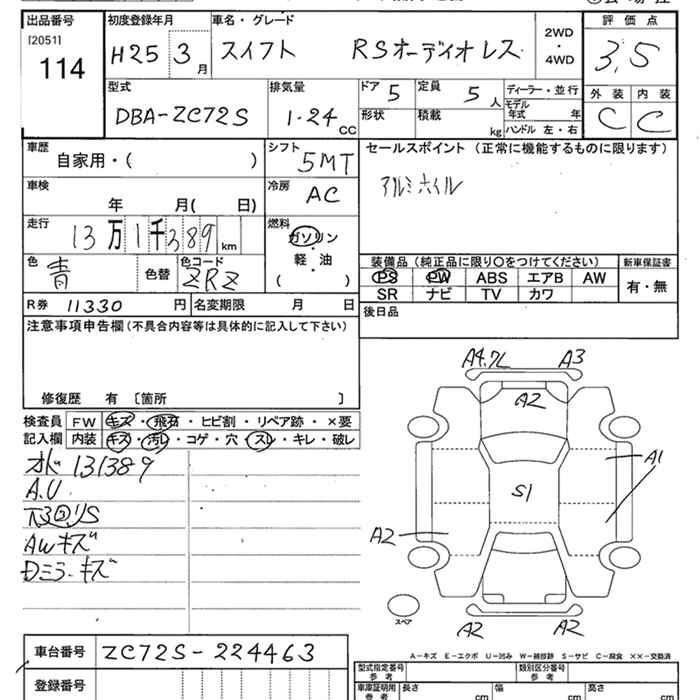 出品番号 初度登録年月 車名・グレード 評価点
[2051]
114 H25 3月 スイフト RSオーディオレス 2WD・4WD 3.5
型式 排気量 ドア 5 定員 5人 ディーラー・並行 外装 内装
DBA-ZC72S 1.24CC 形状 積載 kg モデル年式 年 C C
ハンドル 左・右
車歴 シフト セールスポイント (正常に機能するものに限ります)
自家用・( ) 5MT アルミホイル
車検 年 月( 日) 冷房 AC
走行 13万1千389km 燃料 ガソリン・軽油 ( )
色 青 色替 色コード ZRZ 装備品 (純正品に限り○をつけてください) 新車保証書
PS PW ABS エアB AW 有・無
SR ナビ TV カワ
R券 11330円 名変期限 月 日 後日品
注意事項申告欄 (不具合内容等は具体的に記入して下さい)
修復歴 有 〔箇所 〕
検査員 FW キズ・飛石・ヒビ割・リペア跡・×要
記入欄 内装 キズ・汚レ・コゲ・穴・スレ・キレ・破レ
131389
A.U
AWキズ
Dミラーキズ
A4.7L A3
A2
A1
S1
A2
スペア
A2 A2
A-キズ E-エクボ U-凹み W-補修跡 S-サビ C-腐食 ××-交換済
車台番号 ZC72S-224463
登録番号
型式指定番号 参考 類別区分番号 参考
車庫証明用 参考 長さ cm 幅 cm 高さ cm